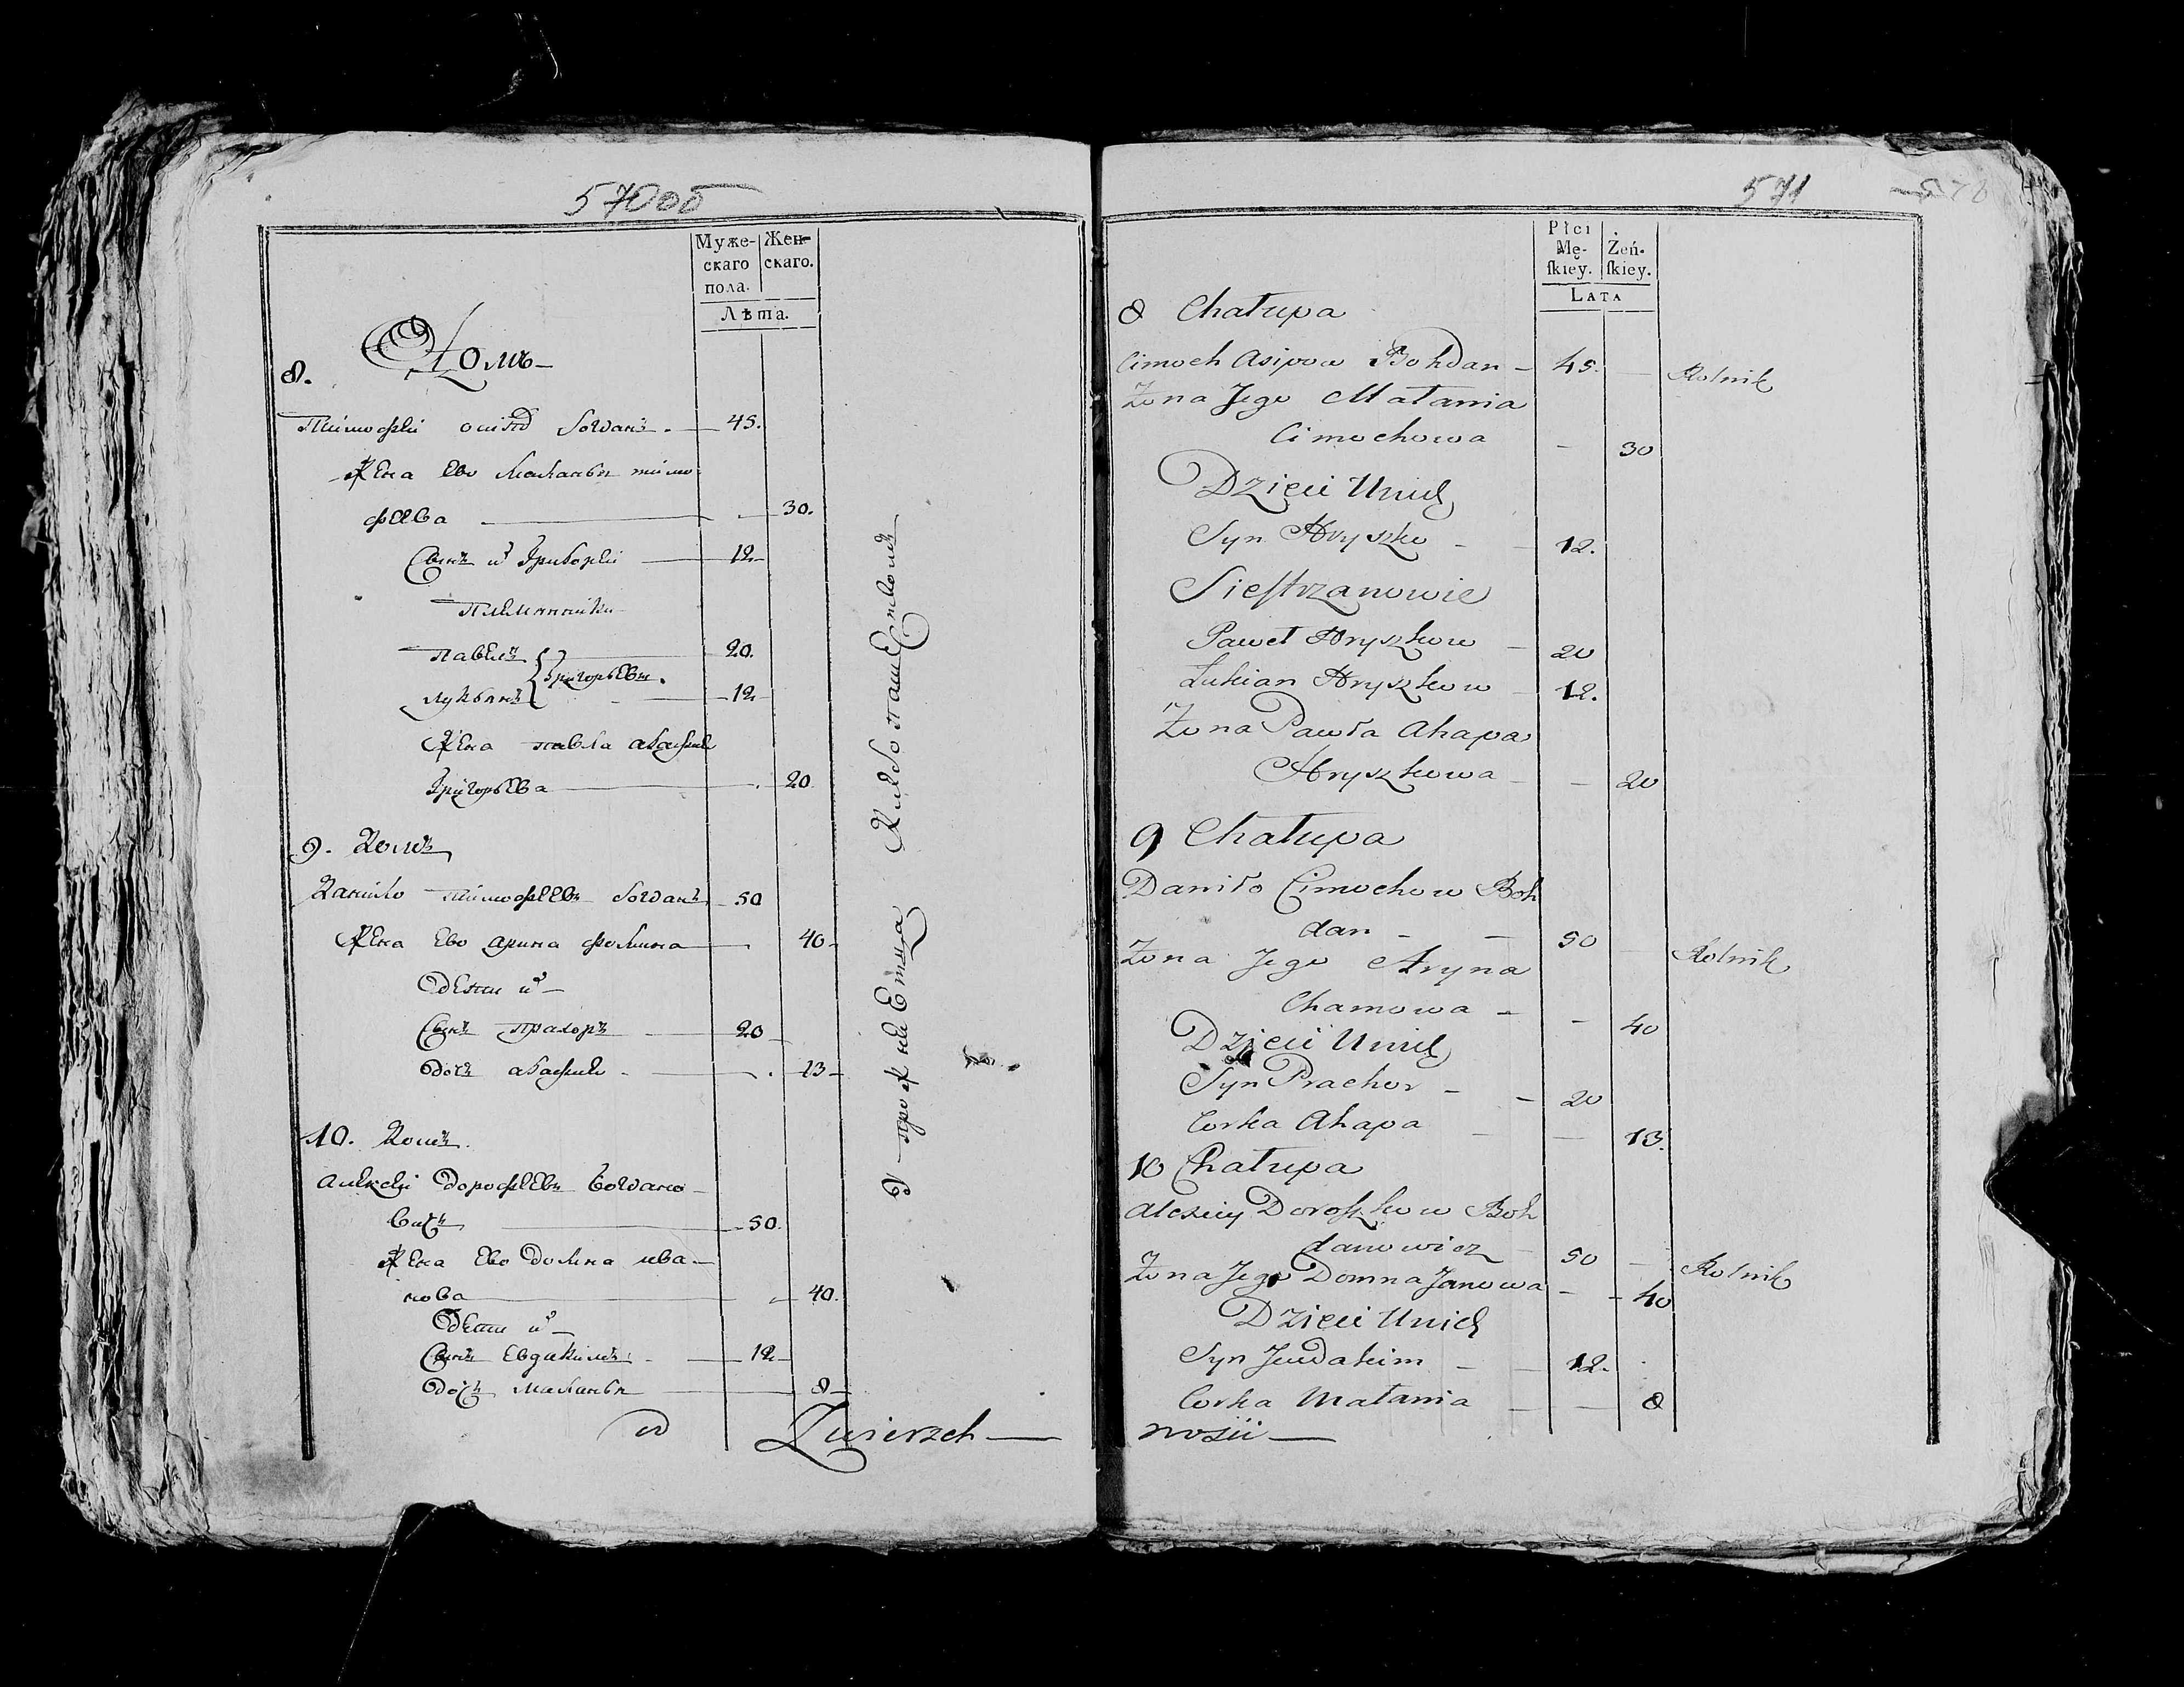 570об
Муже- Жен-
скаго скаго.
пола.
Лѣта.
8. Домъ
Тимофей осипов богдан 45.
жена ево маланья тимо
феева 30.
Сынъ их григорей 12
племянники
павелъ 20.
григорьевы
лукьянъ 12
жена павла агафья
григорьева 20
9. Домъ
Данило тимофеевъ богданъ 50
жена ево арина фомина 40
дети их
сынъ прахоръ 20
дочь агафья 13
10. Домъ
алексей дорофеевъ богдано
вичь 50.
жена ево домна ива
нова 40.
дети их
сынъ евдакимъ 12
дочь маланья 8
Zwierzch
проженетца хлебопашеством
571
Płci
Mę- Żeń-
ſkiey. ſkiey.
Lata
8 Chałupa
Cimoch Asipow Bohdan 45. Rolnik
Żona Jego Małania
Cimochowa 30
Dzieci Unich
Syn Hryszko 12.
Sieſtrzanowie
Paweł Hryszkow 20
Łukian Hryszkow 12.
Żona Pawła Ahapa
Hryszkowa 20
9 Chałupa
Daniło Cimochow Boh
dan 50 Rolnik
Żona Jego Aryna
Chamowa 40
Dzieci Unich
Syn Prachor 20
Corka Ahapa 13.
10 Chałupa
Alexiey Doroſzkow Boh
danowicz 50 Rolnik
Żona Jego Domna Janowa 40
Dzieci Unich
Syn Jewdakim 12.
Corka Małania 8
nosii